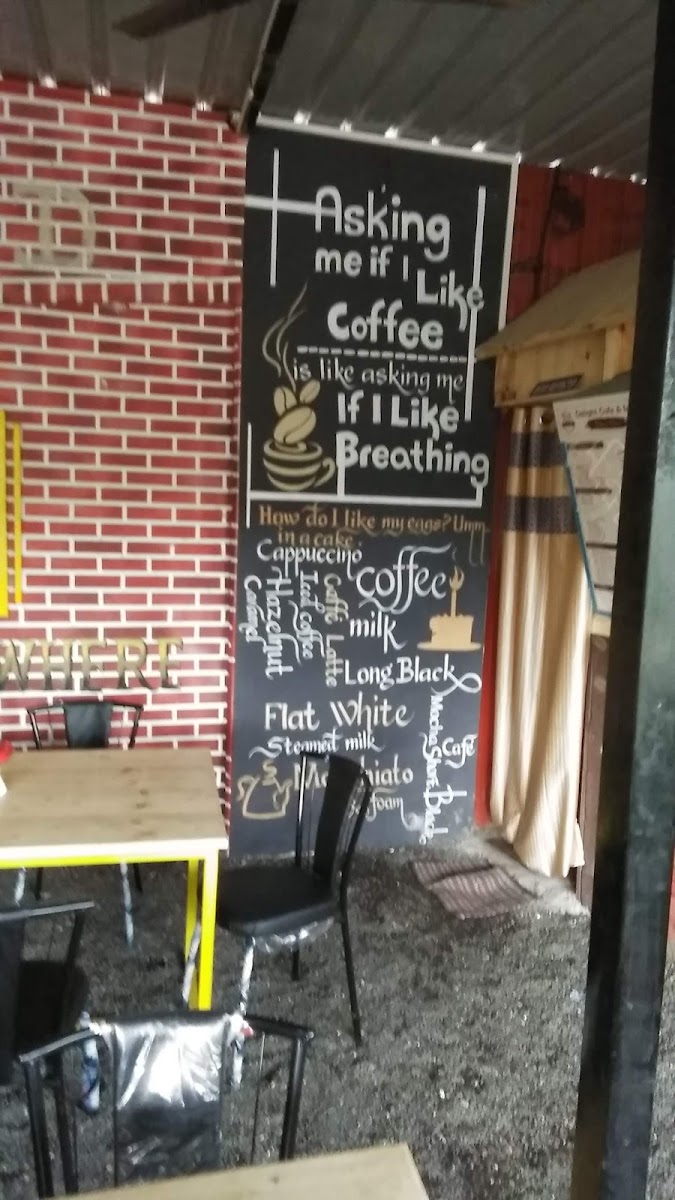 D
WHERE
Asking
me if I
Like
Coffee
is like asking me
If I Like
Breathing
How do I like my eggs? Umm
in a cake.
Cappuccino
coffee
Caramel
Hazelnut
Iced Coffee
Caffé Latte
milk
Long Black
Flat White
Steamed milk
Mocha Short Black
Cafe
foam